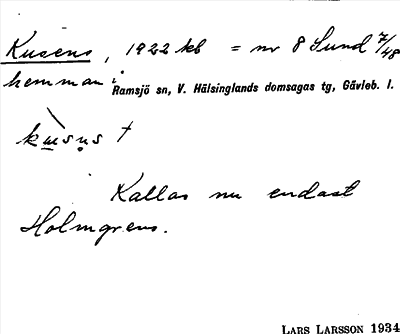 Kusens, 1922 kb = nr 8 Sund 7/48
hemman i
Ramsjö sn, V. Hälsinglands domsagas tg, Gävleb. l.
kusus †
Kallas nu endast
Holmgrens.
LARS LARSSON 1934